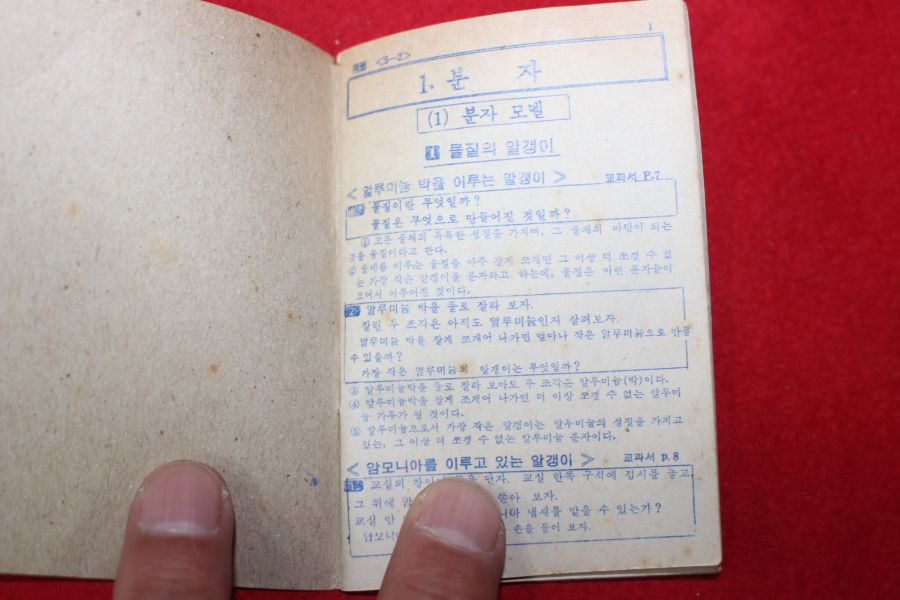 1
자연 <5-2>
1. 분 자
(1) 분자 모델
1 물질의 알갱이
< 알루미늄 박을 이루는 알갱이 > 교과서 P.7
물질이란 무엇일까?
물질은 무엇으로 만들어진 것일까?
① 모든 물체의 독특한 성질을 가지며, 그 물체의 바탕이 되는
것을 물질이라고 한다.
② 물체를 이루는 물질을 아주 잘게 쪼개면 그 이상 더 쪼갤 수 없
는 가장 작은 알갱이를 분자라고 하는데, 물질은 이런 분자들이
모여서 이루어진 것이다.
2 알루미늄 박을 둘로 잘라 보자.
잘린 두 조각은 아직도 알루미늄인지 살펴보자.
알루미늄 박을 잘게 쪼개어 나가면 얼마나 작은 알루미늄으로 만들
수 있을까?
가장 작은 알루미늄의 알갱이는 무엇일까?
③ 알루미늄박을 둘로 잘라 보아도 두 조각은 알루미늄(박)이다.
④ 알루미늄박을 잘게 쪼개어 나가면 더 이상 쪼갤 수 없는 알루미
늄 가루가 될 것이다.
⑤ 알루미늄으로서 가장 작은 알갱이는 알루미늄의 성질을 가지고
있는, 그 이상 더 쪼갤 수 없는 알루미늄 분자이다.
< 암모니아를 이루고 있는 알갱이 > 교과서 p.8
교실의 창이 닫자. 교실 한쪽 구석에 접시를 놓고
그 위에 암 쏟아 보자.
교실 안 니아 냄새를 맡을 수 있는가?
암모니 손을 들어 보자.